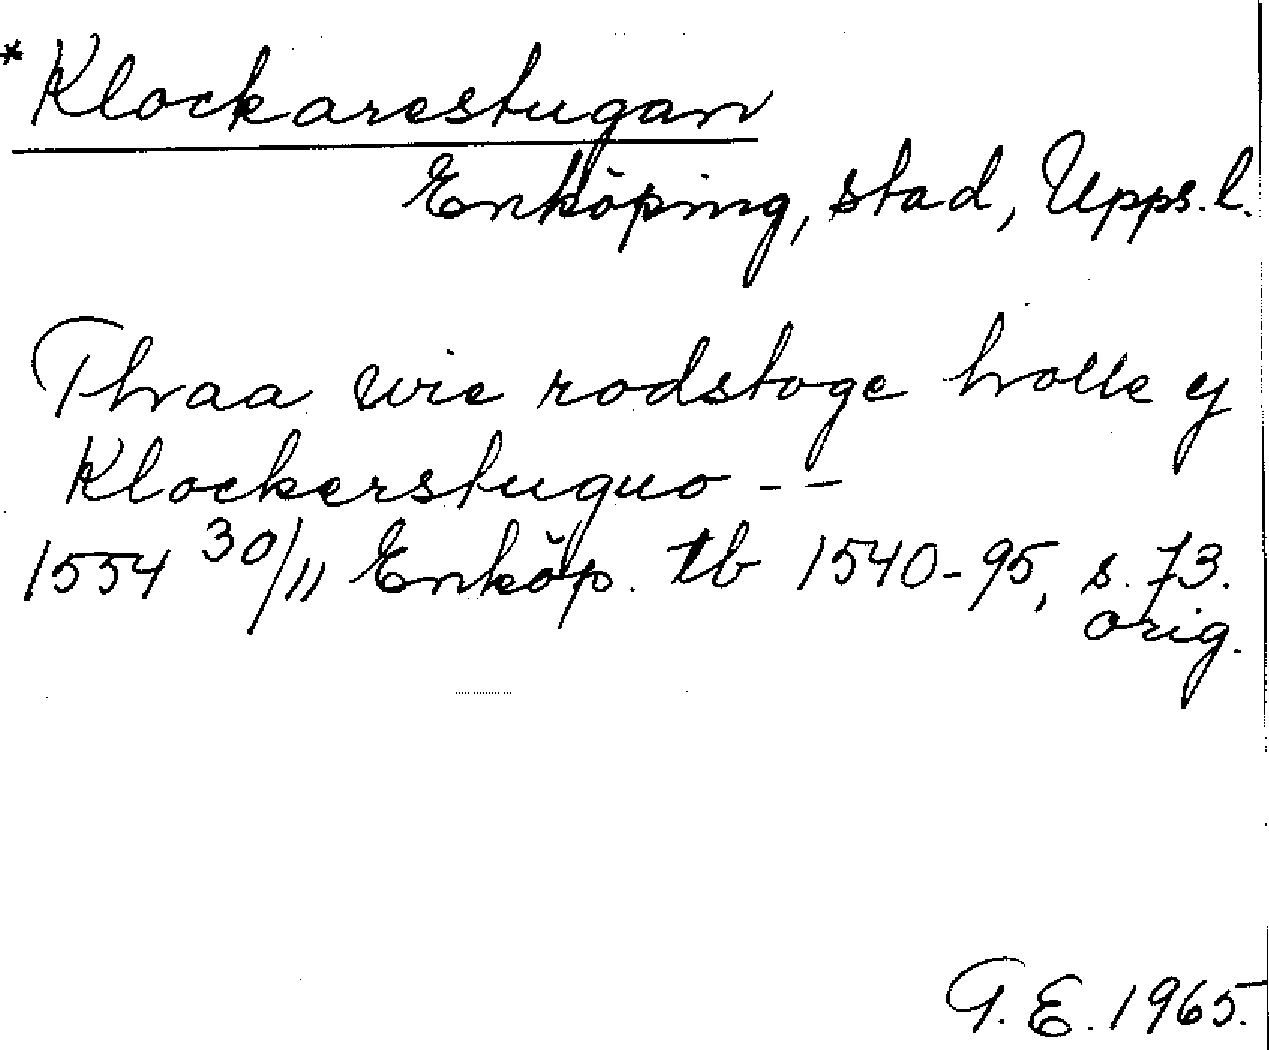 *Klockarestugan
Enköping, stad, Upps. l.
Thaa wie rodstoge holle y
Klockerstuguo - -
1554 30/11 Enköp. tb 1540-95, s. 73.
orig.
G. E. 1965.